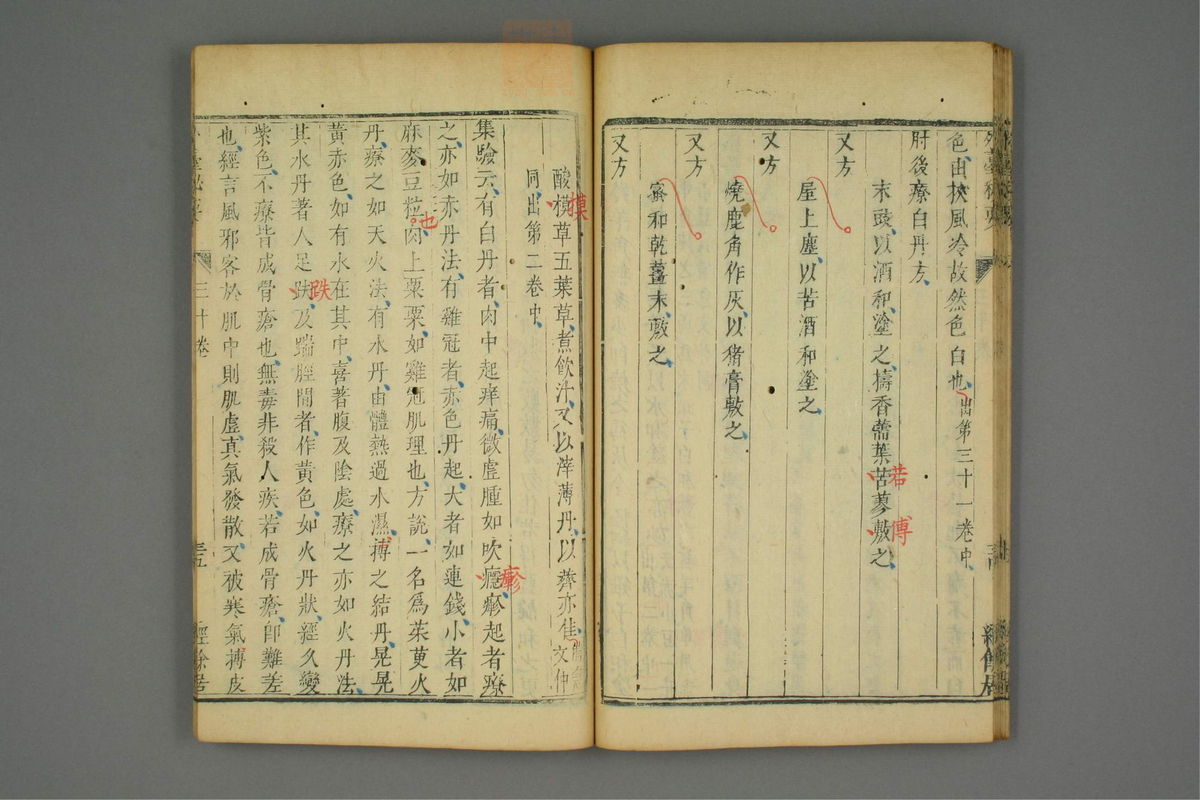 色由挾風冷故然色白也出第三十一卷中
肘後療白丹方
末豉以酒和塗之擣香薷葉苦蓼敷之
若
傅
又方
屋上塵以苦酒和塗之
又方
燒鹿角作灰以猪膏敷之
又方
蜜和乾薑末敷之
又方
酸模草五葉草煮飲汁又以滓薄丹以薺亦佳 文仲
摸
同出第二卷中
集驗云有白丹者肉中起痒痛微虛腫如吹癮瘮起者療
𤺋
之亦如赤丹法有雞冠者赤色丹起大者如連錢小者如
麻麥豆粒肉上粟粟如雞冠肌理也方說一名為茱萸火
也
丹療之如天火法有水丹由體熱過水濕搏之結丹晃晃
黃赤色如有水在其中喜著腹及陰處療之亦如火丹法
其水丹著人足趺及踹脛間者作黃色如火丹狀經久變
跌
紫色不療皆成骨疽也無毒非殺人疾若成骨疽即難差
也經言風邪客於肌中則肌虛真氣發散又被寒氣搏皮
三十卷
三五
經餘居